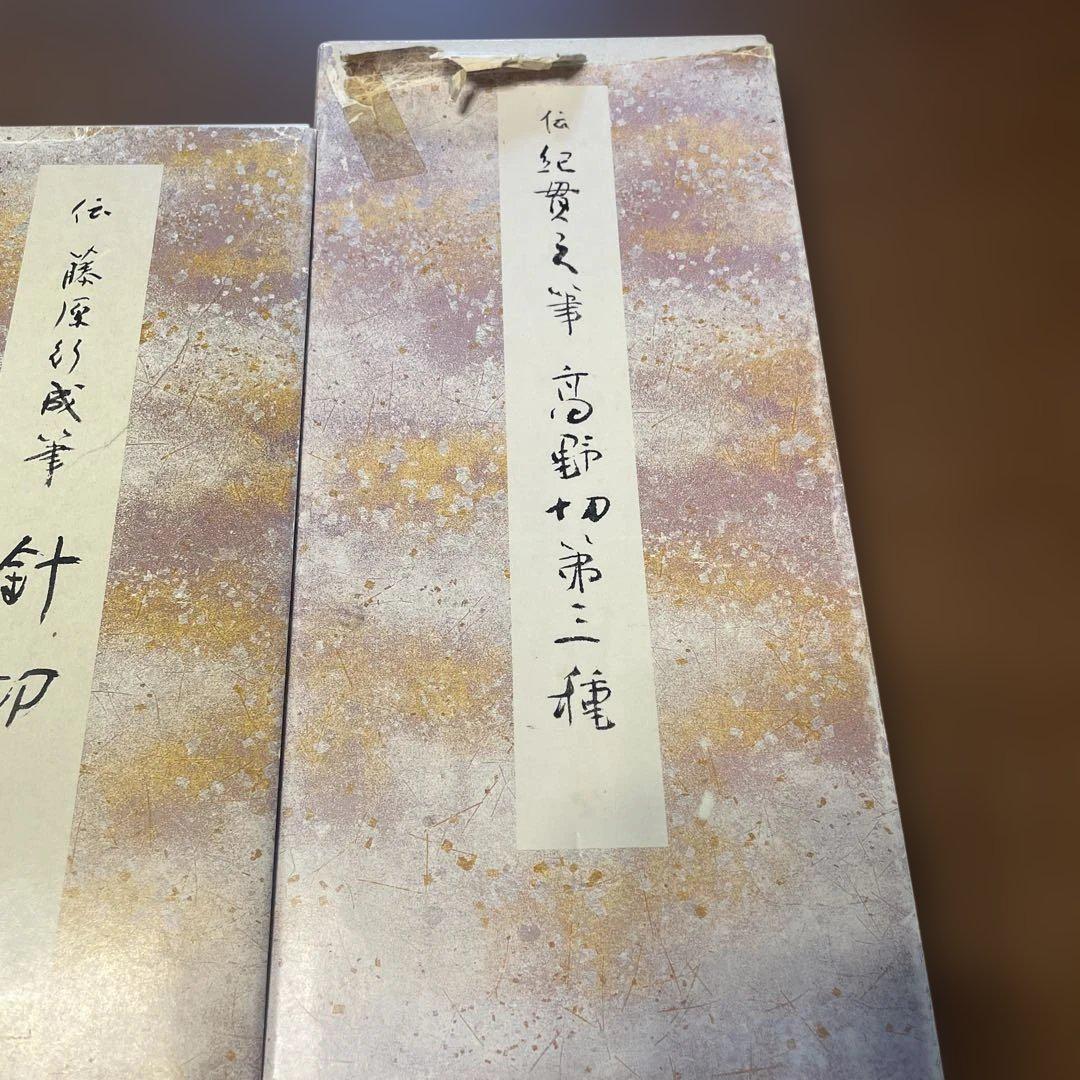 伝 紀貫之筆 高野切第三種
伝 藤原行成筆 針切